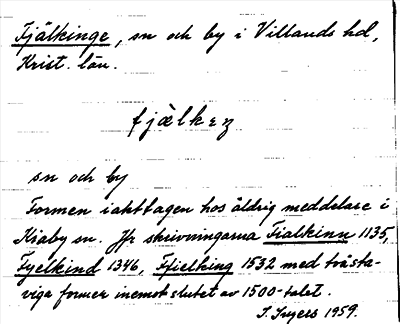 Fjälkinge, sn och by i Villands hd,
Krist. län.
fjælkɛz
sn och by
Formen iakttagen hos äldrig meddelare i
Kiaby sn. Jfr skrivningarna Fialkinn 1135,
Fyelkind 1346, Ffielking 1532 med tvåsta-
viga former inemot slutet av 1500-talet.
I. Ingers 1959.